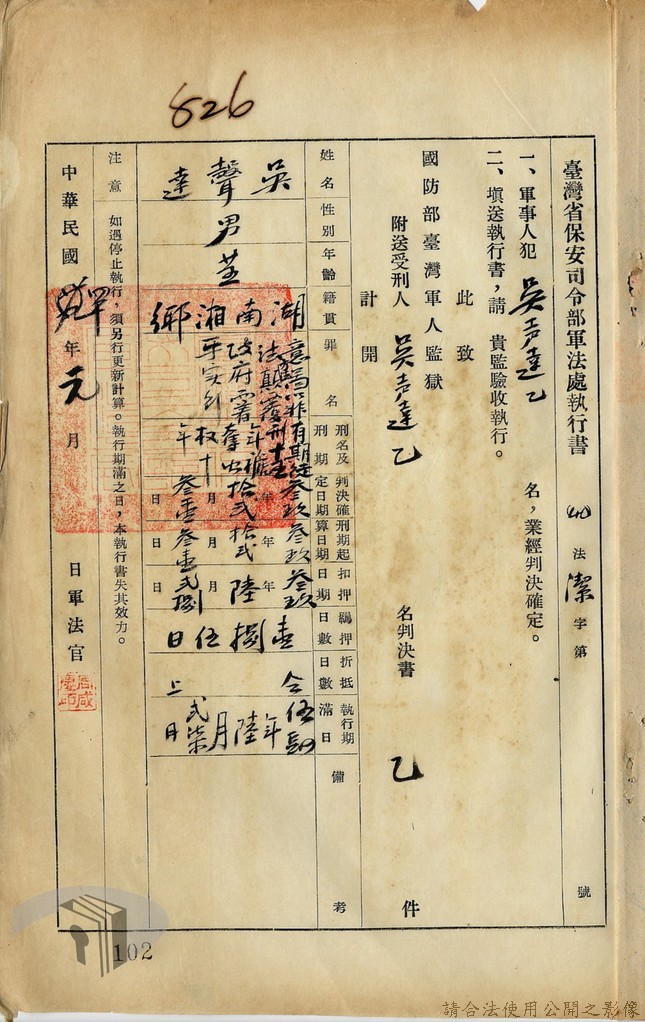 826
臺灣省保安司令部軍法處執行書 法潔字第 號
一、軍事人犯吳声達乙名,業經判決確定。
二、塡送執行書,請 貴監驗收執行。
此致
國防部臺灣軍人監獄
附送受刑人 吳声達乙 名判決書 乙 件
計開
姓名 性別 年齡 籍貫 罪名 刑名及刑期 判決確定日期 刑期起算日期 扣押日期 羈押日數 折抵日數 執行期滿日 備考
吳聲達
男
湖南湘鄉
意圖以非法顛覆政府而著手實行
有期徒刑十五年褫奪公權十年
叁玖年拾貳月叁壹日
叁玖年拾貳月叁壹日
叁玖年陸月貳捌日
壹捌伍日
仝上
伍肆年陸月貳柒日
注意 如遇停止執行,須另行更新計算。執行期滿之日,本執行書失其效力。
中華民國 年元月 日軍法官
102
請合法使用公開之影像